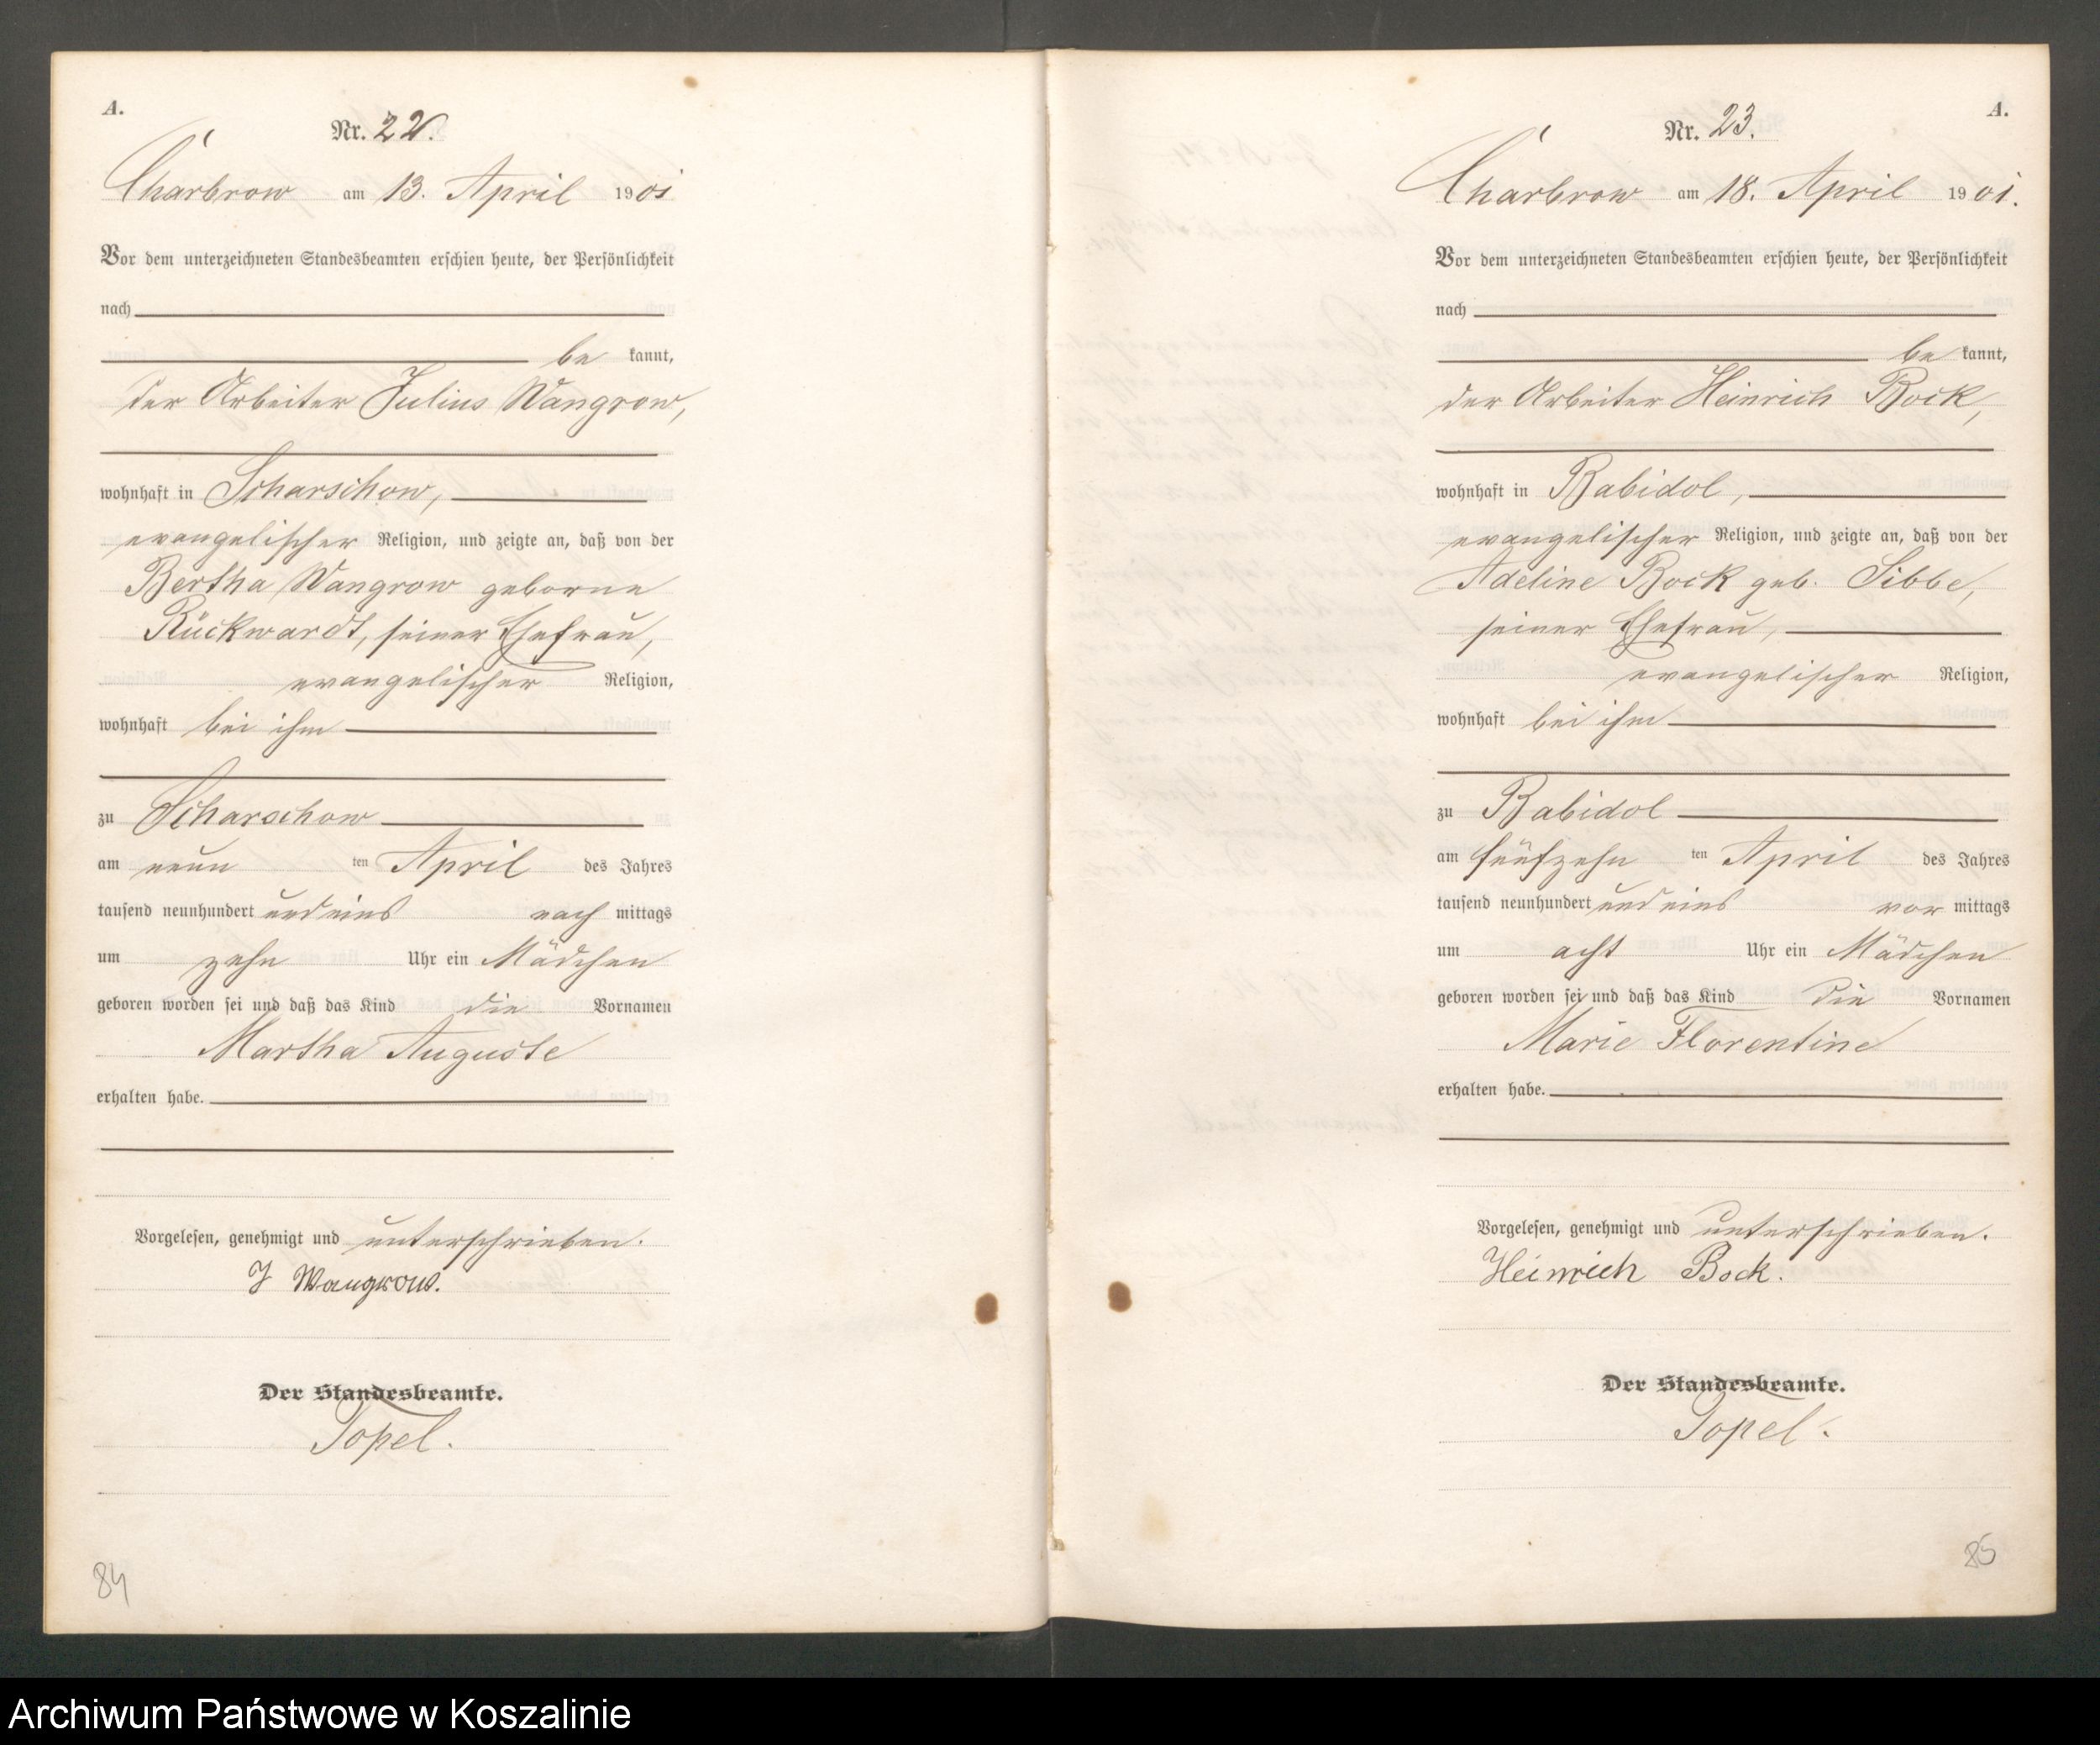 A.
Nr. 22.
Charbrow am 13. April 1901
Vor dem unterzeichneten Standesbeamten erschien heute, der Persönlichkeit
nach
be kannt,
der Arbeiter Julius Wangrow,
wohnhaft in Scharschow,
evangelischer Religion, und zeigte an, daß von der
Bertha Wangrow geborne
Rückwardt, seiner Ehefrau,
evangelischer Religion,
wohnhaft bei ihm
zu Scharschow
am neun ten April des Jahres
tausend neunhundert und eins nach mittags
um zehn Uhr ein Mädchen
geboren worden sei und daß das Kind die Vornamen
Martha Auguste
erhalten habe.
Vorgelesen, genehmigt und unterschrieben.
J Wangrow.
Der Standesbeamte.
Topel.
84
A.
Nr. 23.
Charbrow am 18. April 1901.
Vor dem unterzeichneten Standesbeamten erschien heute, der Persönlichkeit
nach
be kannt,
der Arbeiter Heinrich Bock,
wohnhaft in Babidol,
evangelischer Religion, und zeigte an, daß von der
Adeline Bock geb. Sibbe,
seiner Ehefrau,
evangelischer Religion,
wohnhaft bei ihm
zu Babidol
am fünfzehn ten April des Jahres
tausend neunhundert und eins vor mittags
um acht Uhr ein Mädchen
geboren worden sei und daß das Kind die Vornamen
Marie Florentine
erhalten habe.
Vorgelesen, genehmigt und unterschrieben.
Heinrich Bock.
Der Standesbeamte.
Topel.
85
Archiwum Państwowe w Koszalinie